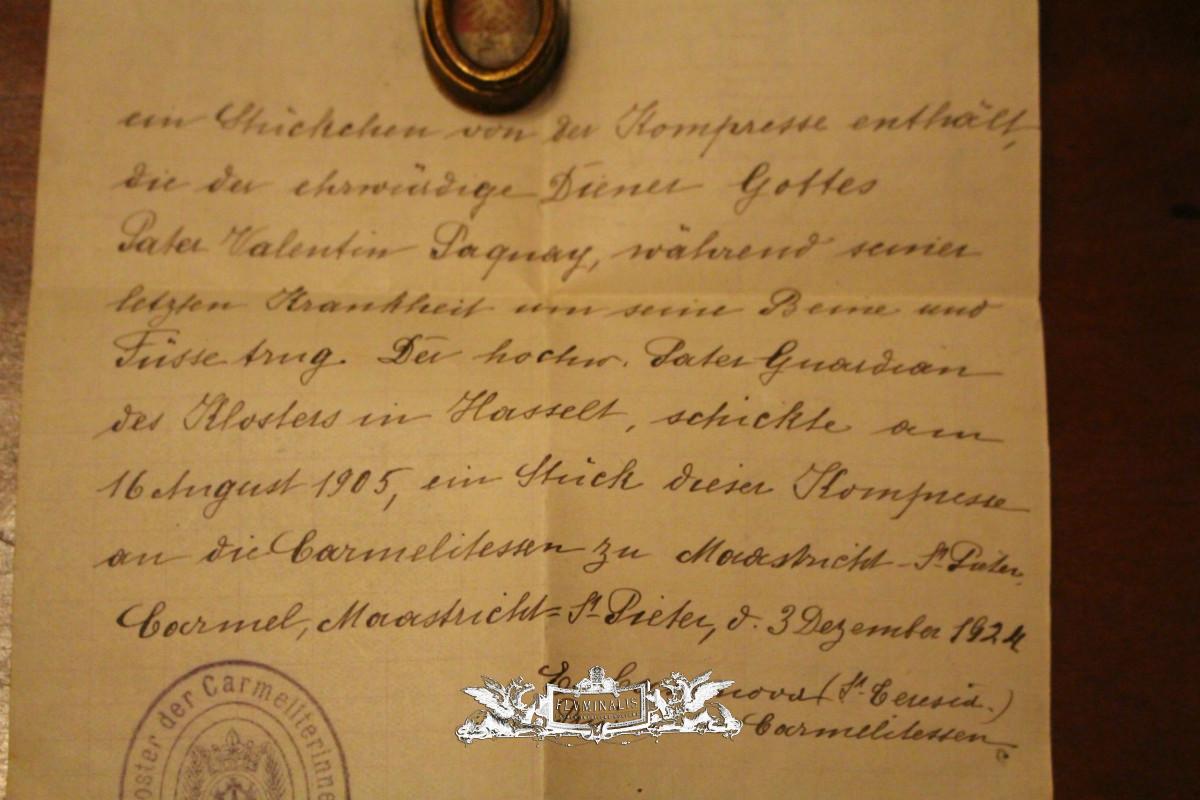 ein Stückchen von der Kompresse enthält,
die der ehrwürdige Diener Gottes
Pater Valentin Paquay, während seiner
letzten Krankheit um seine Beine und
Füsse trug. Der hochw. Pater Guardian
des Klosters in Hasselt, schickte am
16 August 1905, ein Stück dieser Kompresse
an die Carmelitessen zu Maastricht - St Pieter.
Carmel, Maastricht = St Pieter, d. 3 Dezember 1924
(St Teresia.)
Carmelitessen
der Carmeliterinne
FLVMINALIS